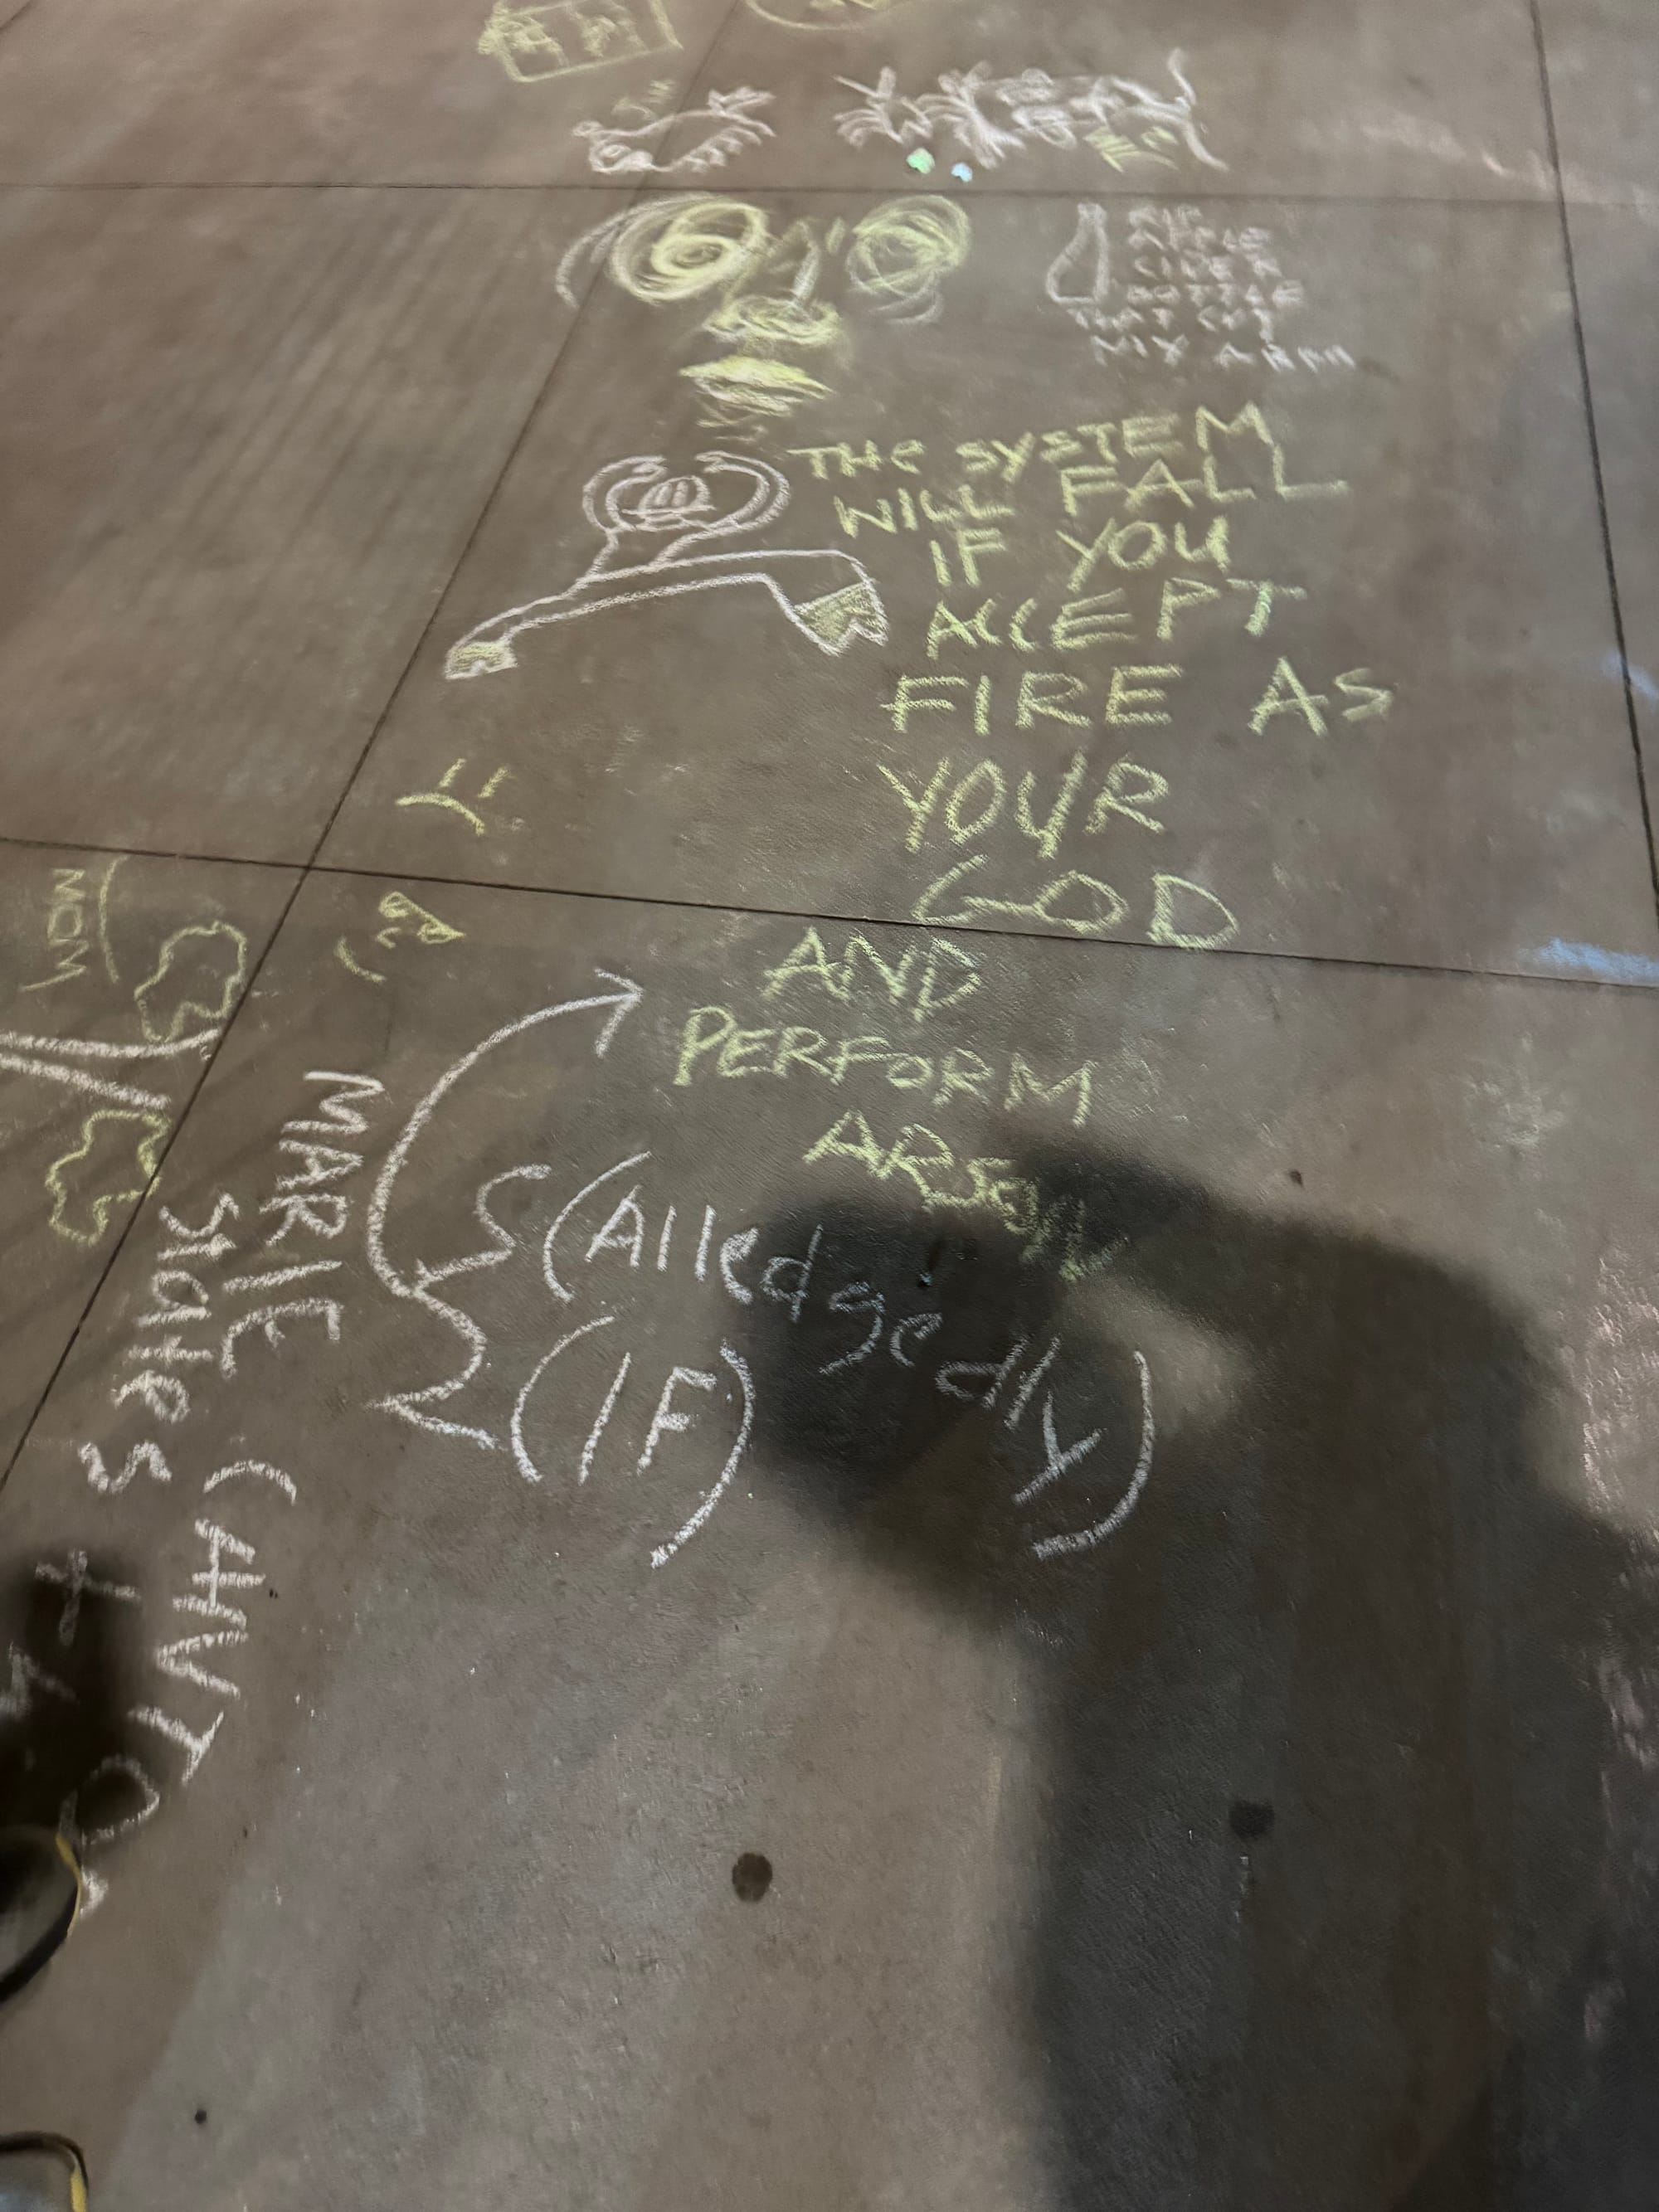 RIP
APPLE
CIDER
BOTTLE
THAT CUT
MY ARM
THE SYSTEM
WILL FALL
IF YOU
ACCEPT
FIRE AS
YOUR
GOD
AND
PERFORM
ARSON
(Alledgedly)
(IF)
MOM
MARIE
States